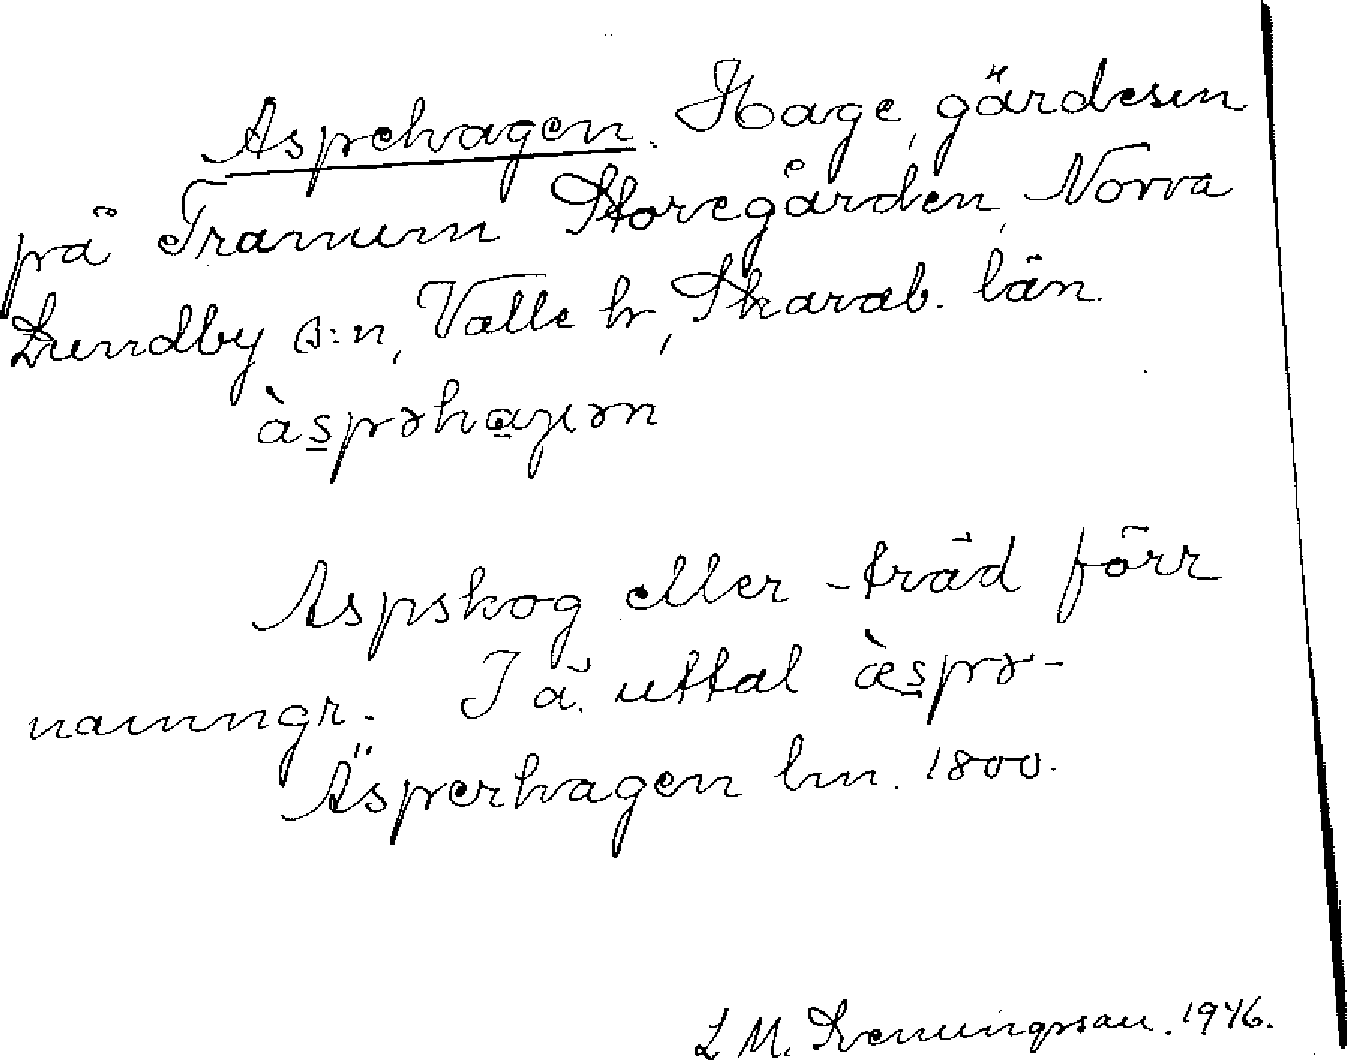 Aspehagen. Hage, gärdesin
på Tranum Storegården, Norra
Lundby s:n, Valle hr, Skarab. län.
àspəhaɡən
Aspskog eller -träd förr
namngr. I ä. uttal æ̀spə-
Äsperhagen lm. 1800.
L M. 1946.